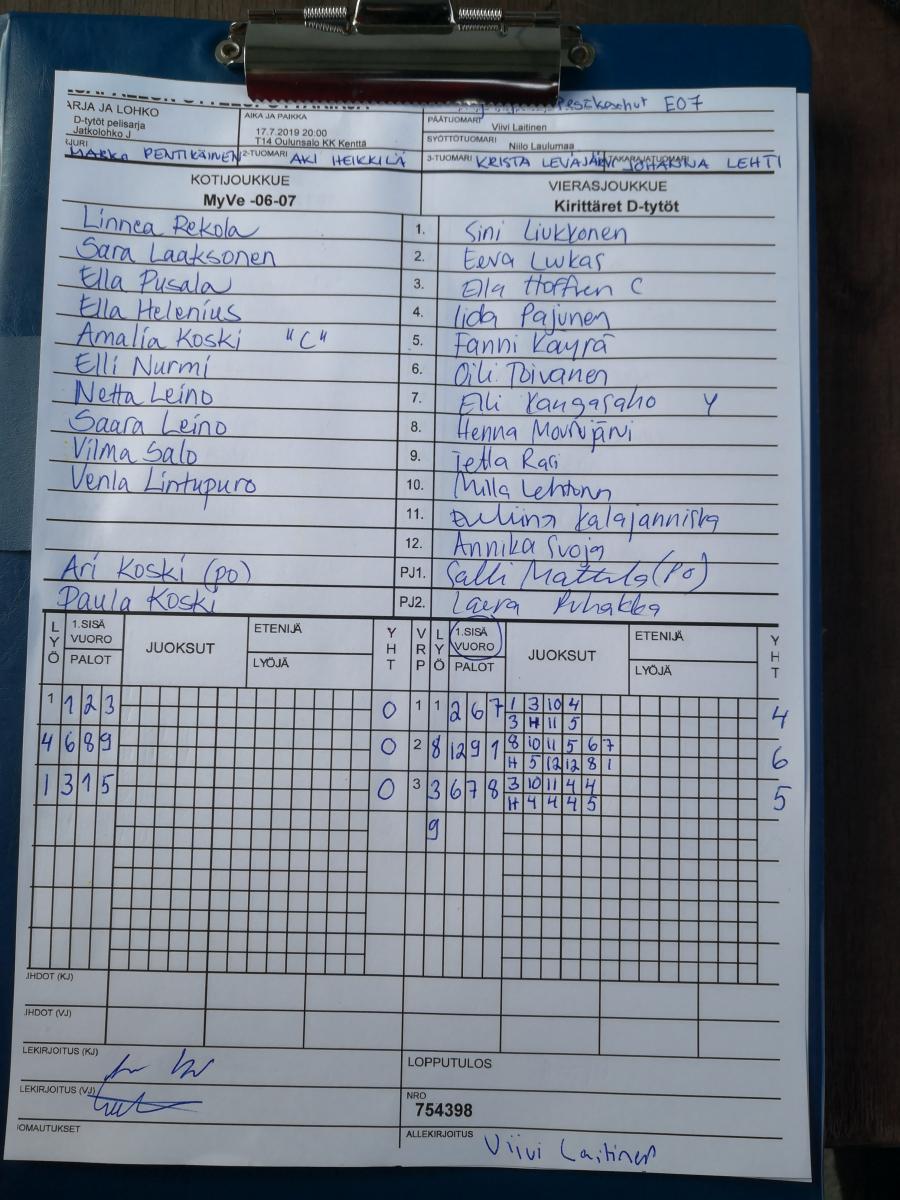 Pesikoschut E07
ARJA JA LOHKO
D-tytöt pelisarja
Jatkolohko J
AIKA JA PAIKKA
17.7.2019 20:00
T14 Oulunsalo KK Kenttä
PÄÄTUOMARI
Viivi Laitinen
SYÖTTÖTUOMARI
Niilo Laulumaa
MARKO PENTIKÄINEN
2-TUOMARI AKI HEIKKILÄ
3-TUOMARI KRISTA LEVÄJÄRVI
TAKARAJATUOMARI JOHANNA LEHTI
KOTIJOUKKUE
MyVe -06-07
VIERASJOUKKUE
Kirittäret D-tytöt
Linnea Rekola 1. Sini Liukkonen
Sara Laaksonen 2. Eeva Luukas
Ella Pusala 3. Ella Hoffren C
Ella Helenius 4. Iida Pajunen
Amalia Koski "C" 5. Fanni Käyrä
Elli Nurmi 6. Oili Toivanen
Netta Leino 7. Elli Kangasaho Y
Saara Leino 8. Henna
Vilma Salo 9.
Venla Lintupuro 10. Milla Lehtonen
11.
12. Annika Svoja
Ari Koski (po) PJ1. Salli Mattila (Po)
Paula Koski PJ2. Laura Puhakka
LYÖ 1.SISÄ VUORO PALOT JUOKSUT ETENIJÄ LYÖJÄ YHT VRP LYÖ 1.SISÄ VUORO PALOT JUOKSUT ETENIJÄ LYÖJÄ YHT
1 1 2 3 0 1 1 2 6 7 1 3 10 4 4
3 H 11 5
4 6 8 9 0 2 8 12 9 1 8 10 11 5 6 7 6
H 5 12 12 8 1
1 3 1 5 0 3 3 6 7 8 3 10 11 4 4 5
H 4 4 4 5
9
JHDOT (KJ)
JHDOT (VJ)
LEKIRJOITUS (KJ)
LOPPUTULOS
LEKIRJOITUS (VJ)
NRO
754398
OMAUTUKSET
ALLEKIRJOITUS
Viivi Laitinen